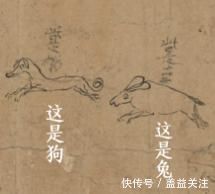 这是狗
这是兔
快传号 / 盖益关注